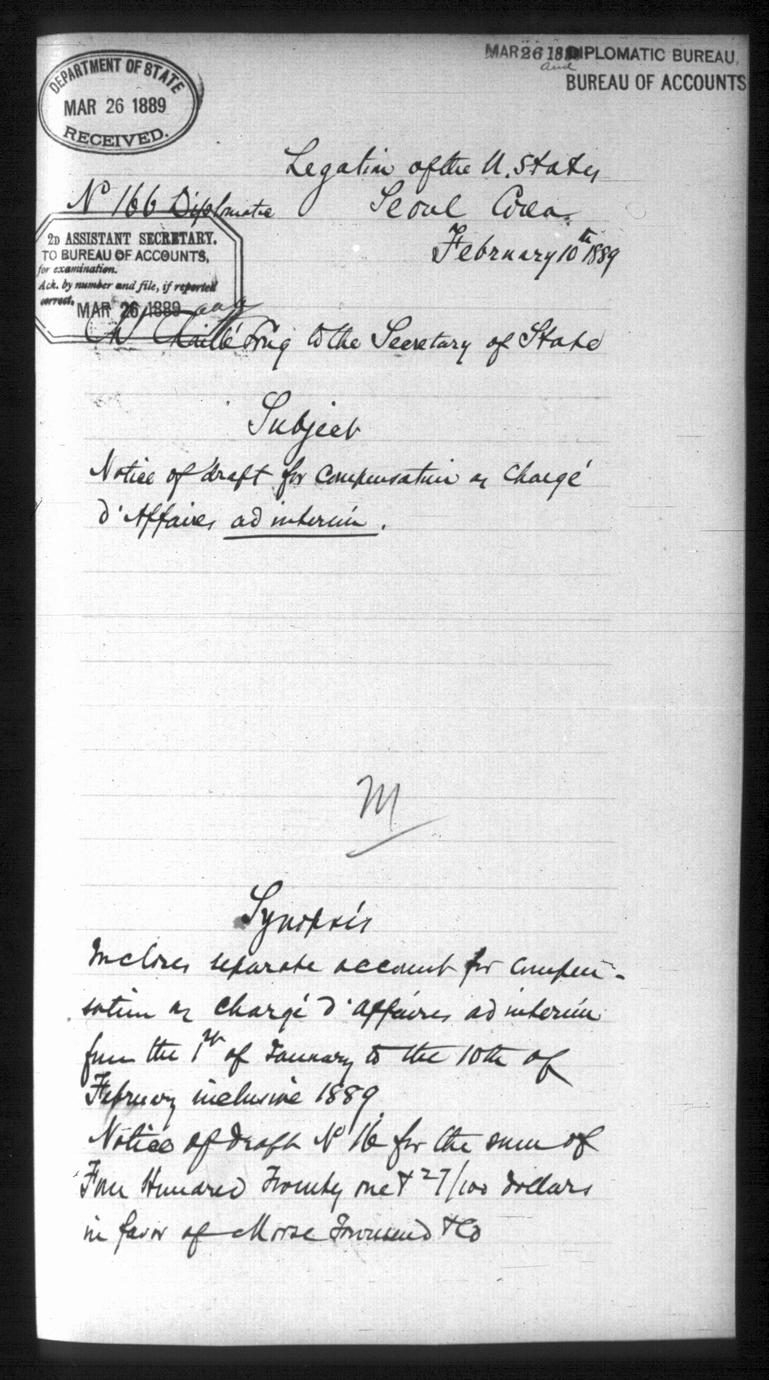 DEPARTMENT OF STATE
MAR 26 1889
RECEIVED.
MAR 26 18 DIPLOMATIC BUREAU,
and
BUREAU OF ACCOUNTS
Legation of the U. States
Nº 166 Diplomatic Seoul Corea.
February 10th 1889
2D ASSISTANT SECRETARY.
TO BUREAU OF ACCOUNTS,
for examination.
Ack. by number and file, if reported
correct.
MAR 26 1889
Ch Chaillé Long to the Secretary of State
Subject
Notice of draft for Compensation as Chargé
d'Affaires ad interim.
M
Synopsis
Incloses separate account for Compen-
sation as Chargé d'affaires ad interim
from the 1st of January to the 10th of
February inclusive 1889
Notice of draft Nº 16 for the sum of
Four Hundred Twenty one & 27/100 dollars
in favor of Morse Townsend & Co